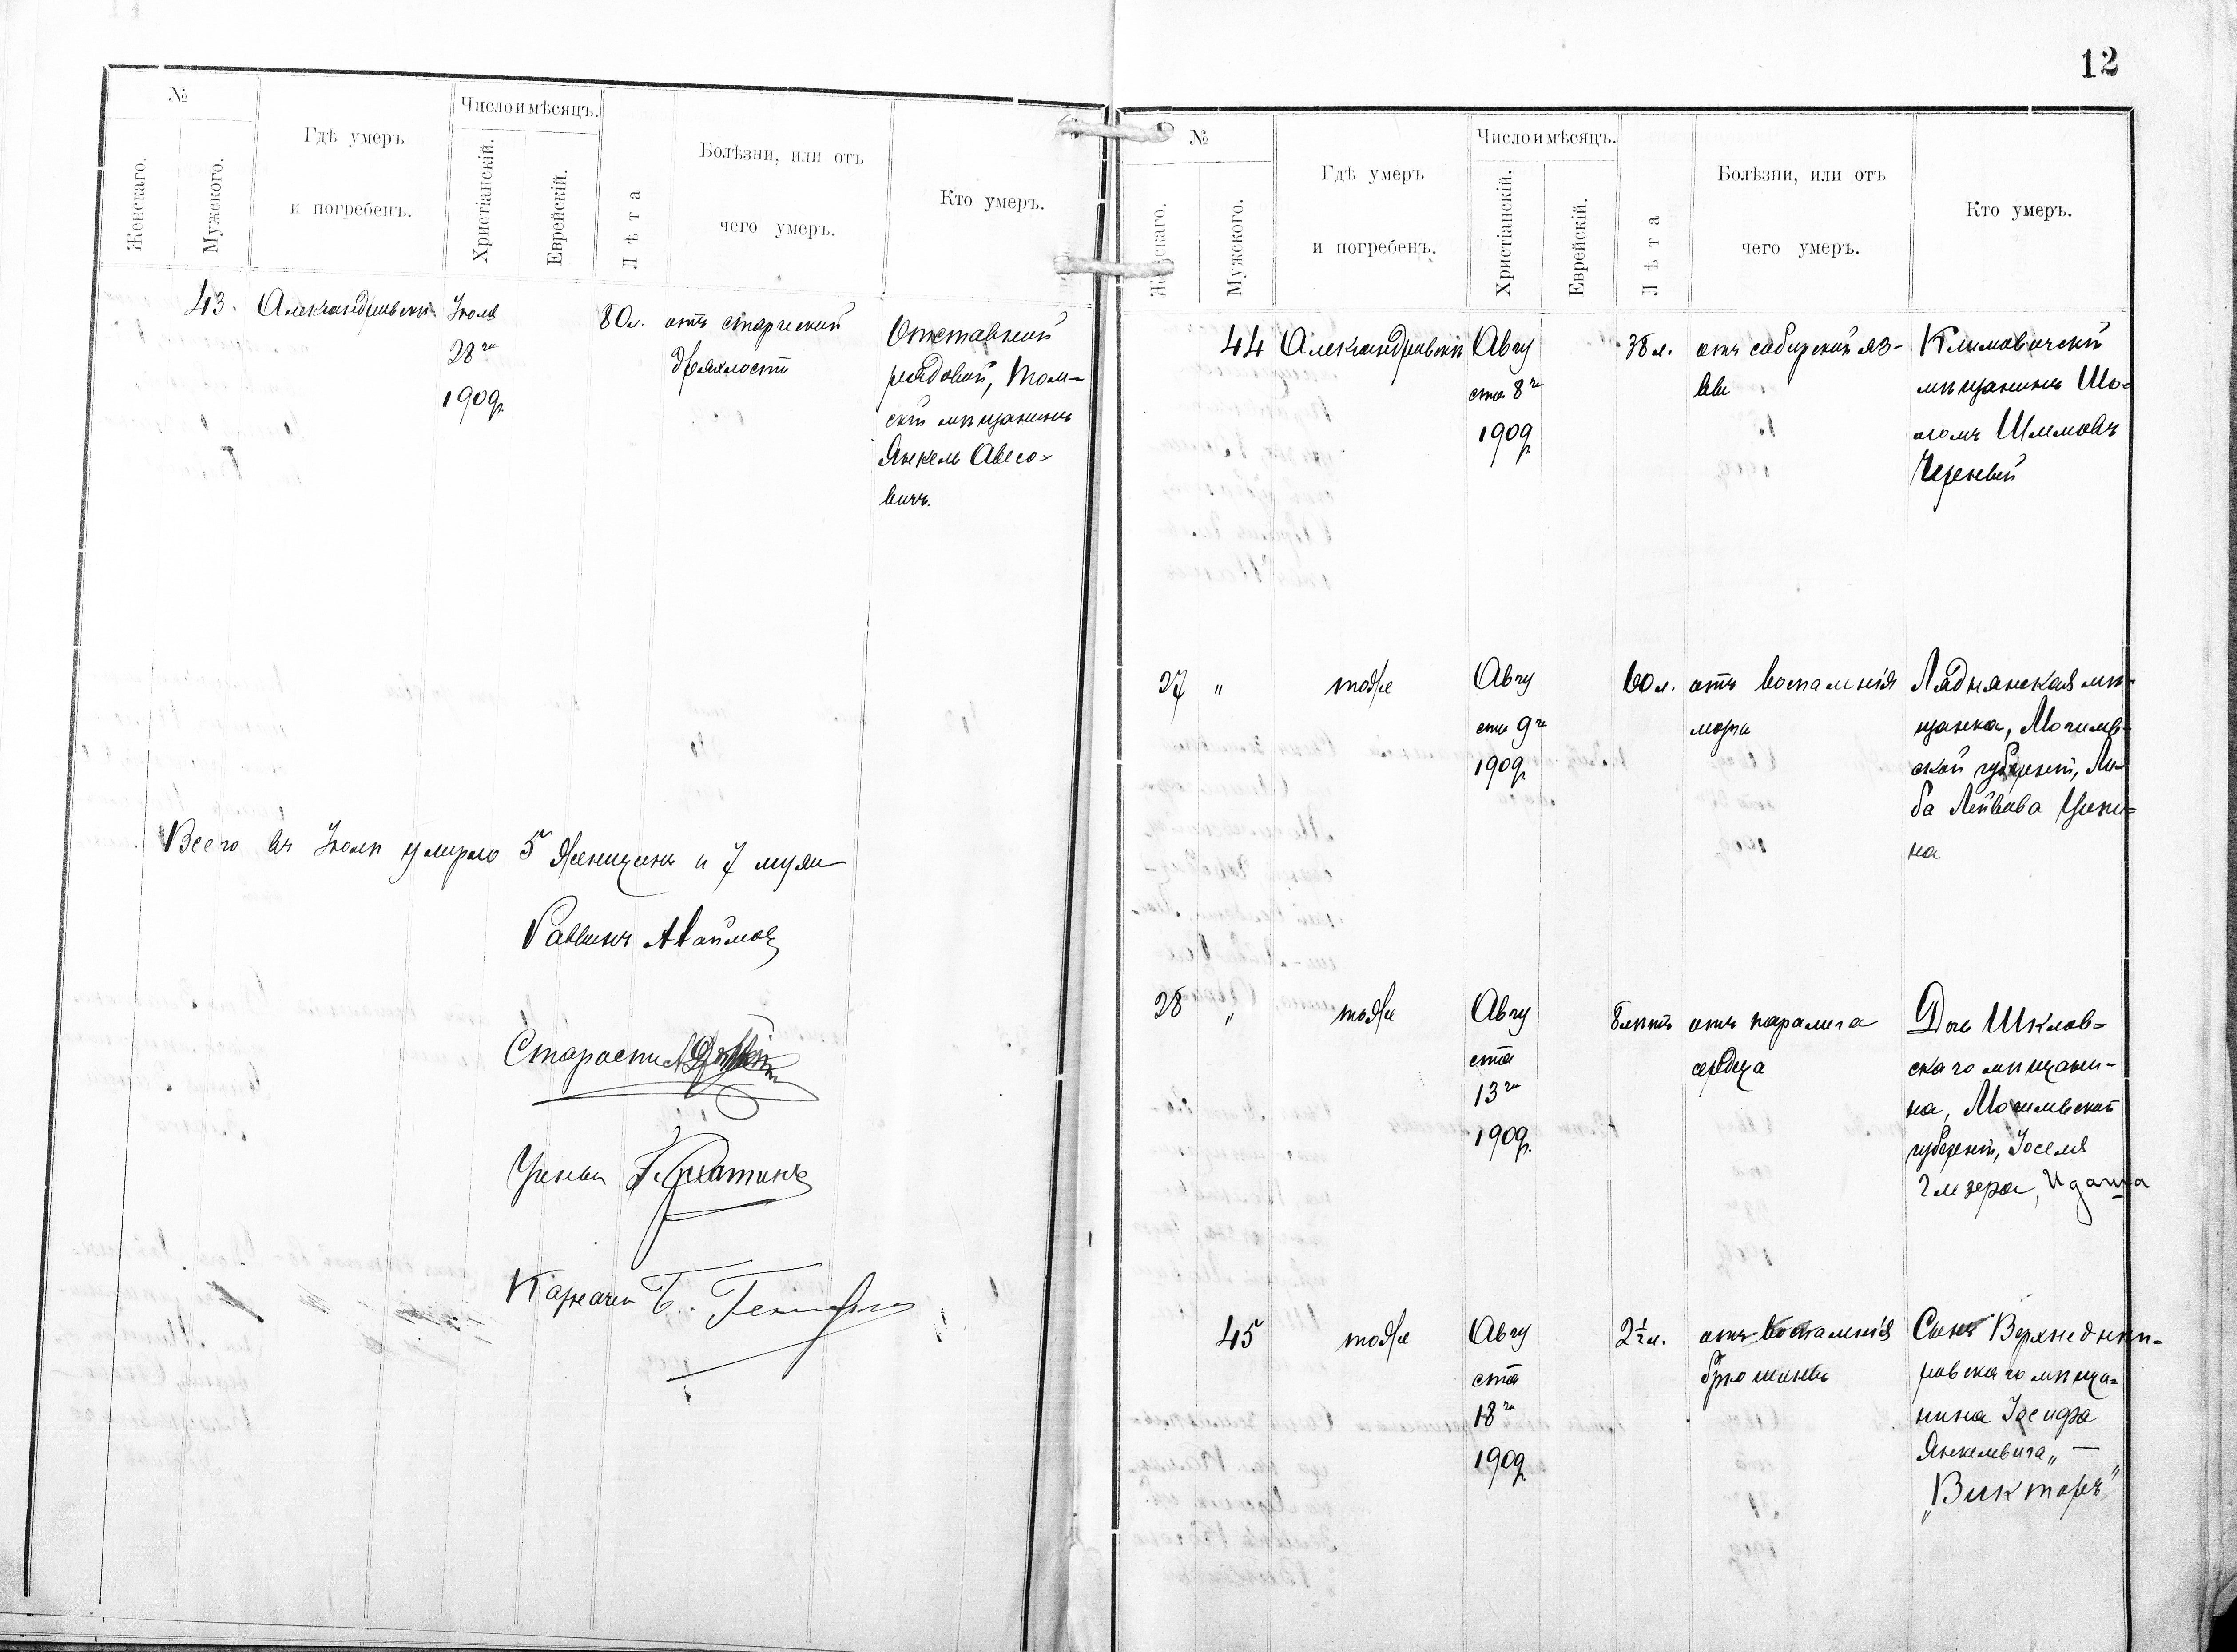 №
Женскаго.
Мужского.
Гдѣ умеръ
и погребенъ.
Число и мѣсяцъ.
Христіанскій.
Еврейскій.
Лѣта
Болѣзни, или отъ
чего умеръ.
Кто умеръ.
43.
Александровскѣ
Іюля
28го
1909г.
80 л.
отъ старческой
дряхлости
Отставной
рядовой, Том-
скій мѣщанинъ
Янкель Авесо-
вичъ.
Всего въ Іюлѣ умерло 5 женщинъ и 7 муж
Раввинъ
Староста
Ученый
Казначей Б.
12
№
Мужского.
Гдѣ умеръ
и погребенъ.
Число и мѣсяцъ.
Христіанскій.
Еврейскій.
Лѣта
Болѣзни, или отъ
чего умеръ.
Кто умеръ.
44
Александровскѣ
Авгу
ста 8го
1909г
38 л.
отъ сибирской яз-
вы
Климовичскій
мѣщанинъ Шо-
ломъ Шлемовъ
Черневой
27
"
тоже
Авгу
ста 9го
1909г
60 л.
отъ воспаленія
мозга
Ляднянская мѣ-
щанка, Могилев-
ской губерніи, Ли-
ба Лейбова Цыки-
на
28
"
тоже
Авгу
ста
13го
1909г.
8 лѣтъ
отъ паралича
сердца
Дочь Шклов-
скаго мѣщани-
на, Могилевской
губерніи, Іоселя
Глезера,
45
тоже
Авгу
ста
18го
1909г
2½ л.
отъ воспаленія
брюшины
Сынъ Верхнеднѣп-
ровскаго мѣща-
нина Іосифа
Янкелевича„ —
„Викторъ"